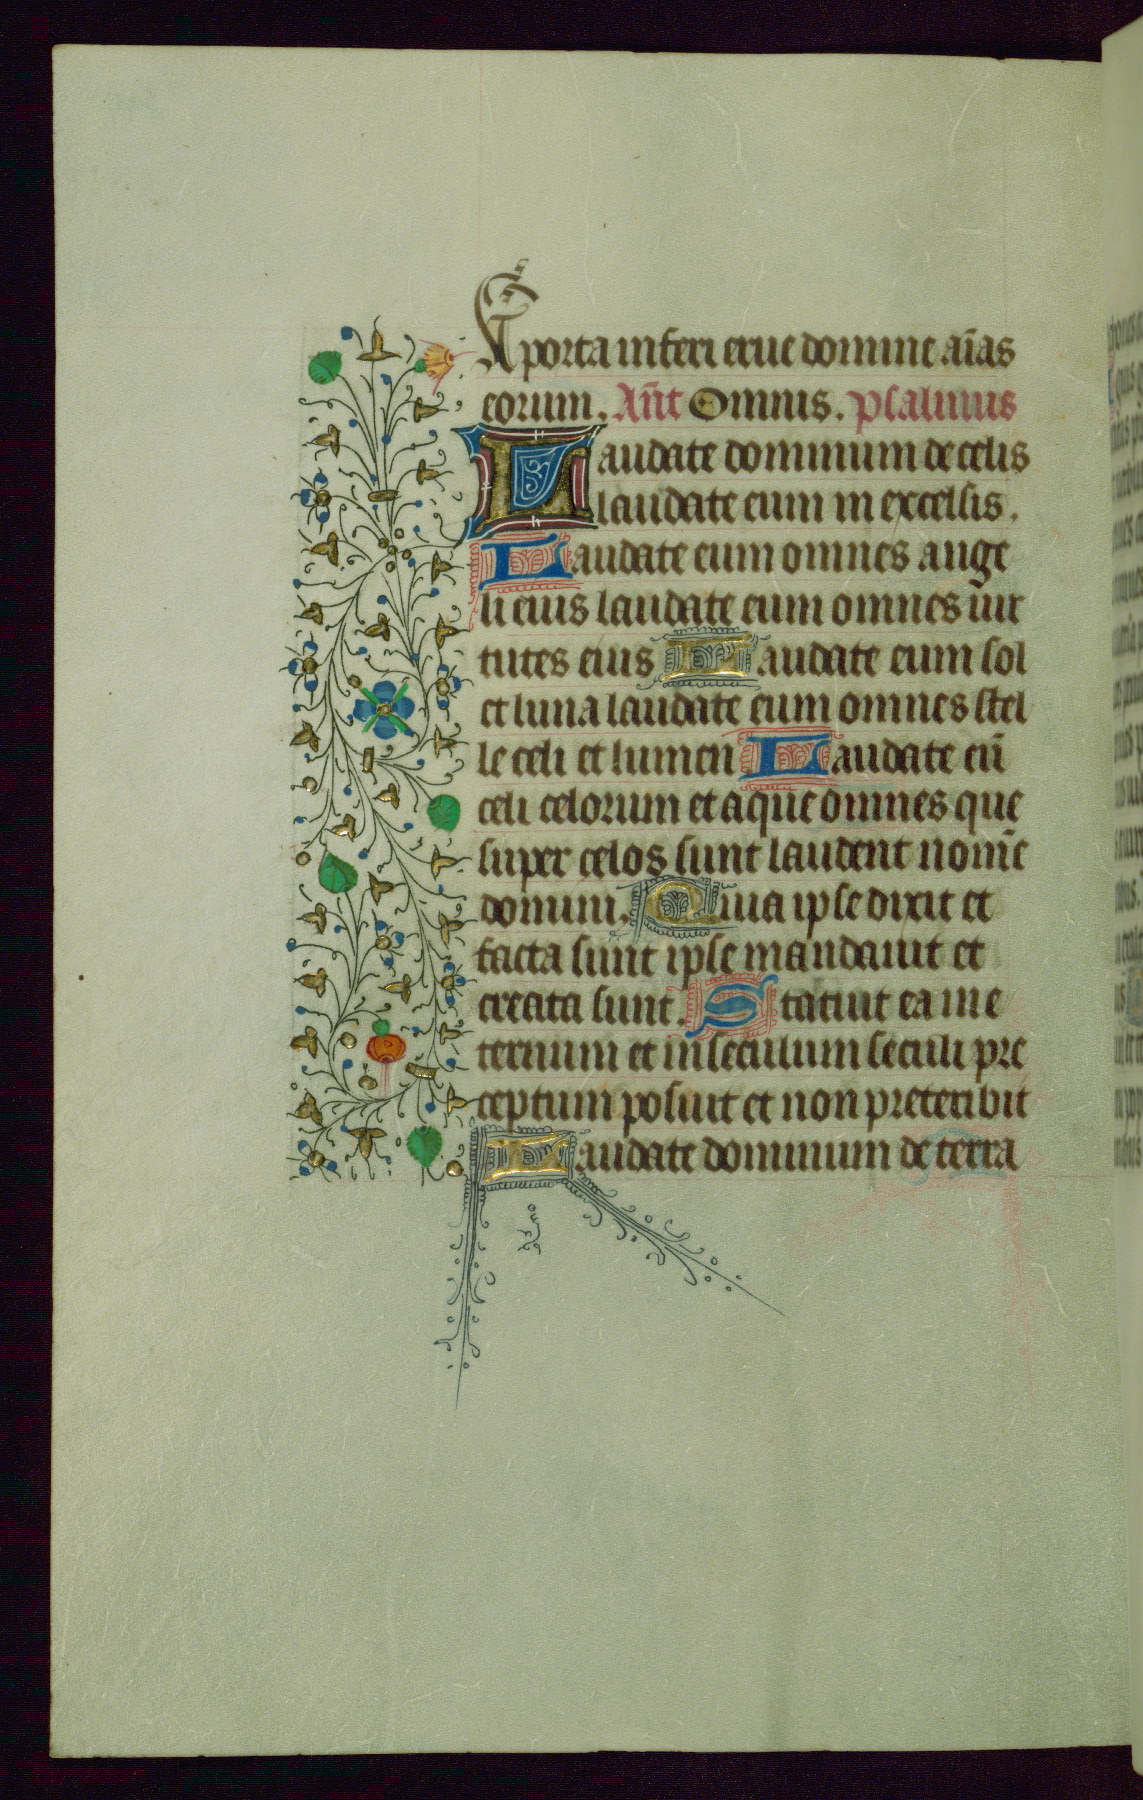 A porta inferi erue domine aīas
eorum. Añt Omnis. psalmus
Laudate dominum de celis
laudate eum in excelsis.
Laudate eum omnes ange
li eius laudate eum omnes uir
tutes eius Laudate eum sol
et luna laudate eum omnes stel
le celi et lumen Laudate eū
celi celorum et aque omnes que
super celos sunt laudent nom̄e
domini. Quia ipse dixit et
facta sunt ipse mandauit et
creata sunt. Statuit ea in e
ternum et in seculum seculi pre
ceptum posuit et non preteribit
Laudate dominum de terra